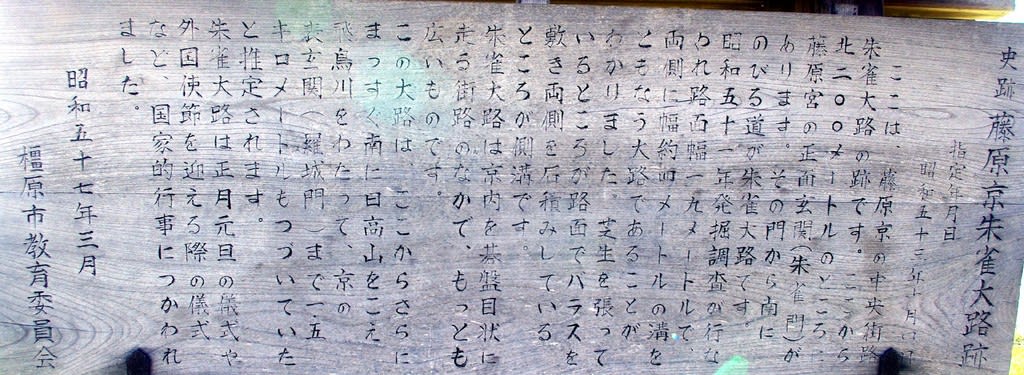 史跡 藤原京朱雀大路跡
指定年月日
昭和五十三年十月
ここは、藤原京の中央街路
朱雀大路の跡です。ここから
北二〇〇メートルのところに
藤原宮の正面玄関(朱雀門)が
あります。その門から南に
のびる道が朱雀大路です。
昭和五十一年発掘調査が行な
われ路面幅一九メートルで、
両側に幅約四メートルの溝を
ともなう大路であることが
わかりました。芝生を張って
いるところが路面でバラスを
敷き両側を石積みしている
ところが側溝です。
朱雀大路は京内を碁盤目状に
走る街路のなかで、もっとも
広いものです。
この大路は ここからさらに
まっすぐ南に日高山をこえ
飛鳥川をわたって、京の
表玄関(羅城門)まで一・五
キロメートルもつづいていた
と推定されます。
朱雀大路は正月元旦の儀式や
外国使節を迎える際の儀式
など、国家的行事につかわれ
ました。
昭和五十七年三月
橿原市教育委員会